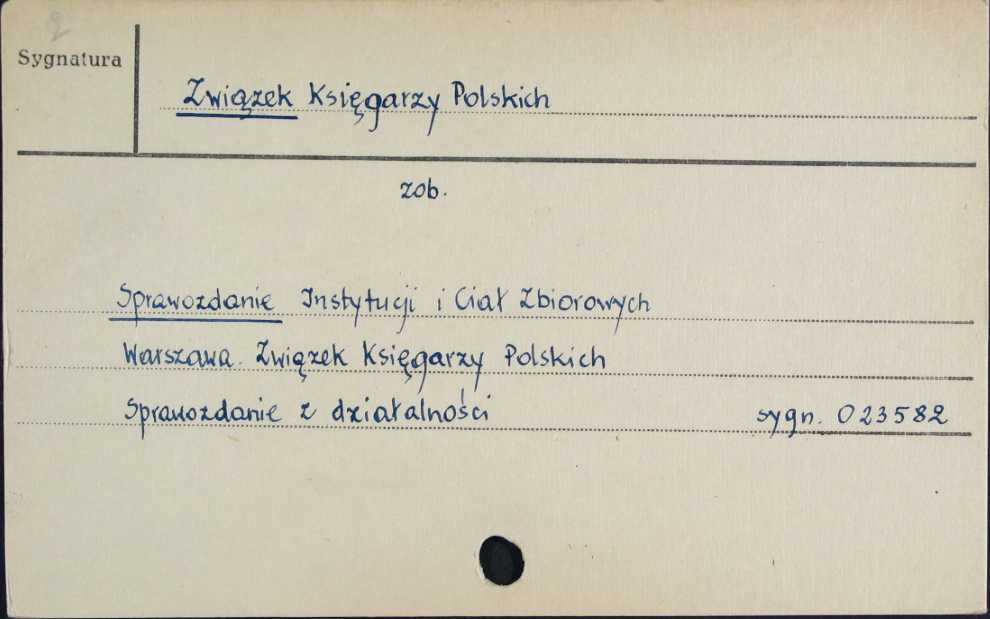 Sygnatura
Związek Księgarzy Polskich
zob.
Sprawozdanie Instytucji i Ciał Zbiorowych
Warszawa. Związek Księgarzy Polskich
Sprawozdanie z działalności sygn. 023582